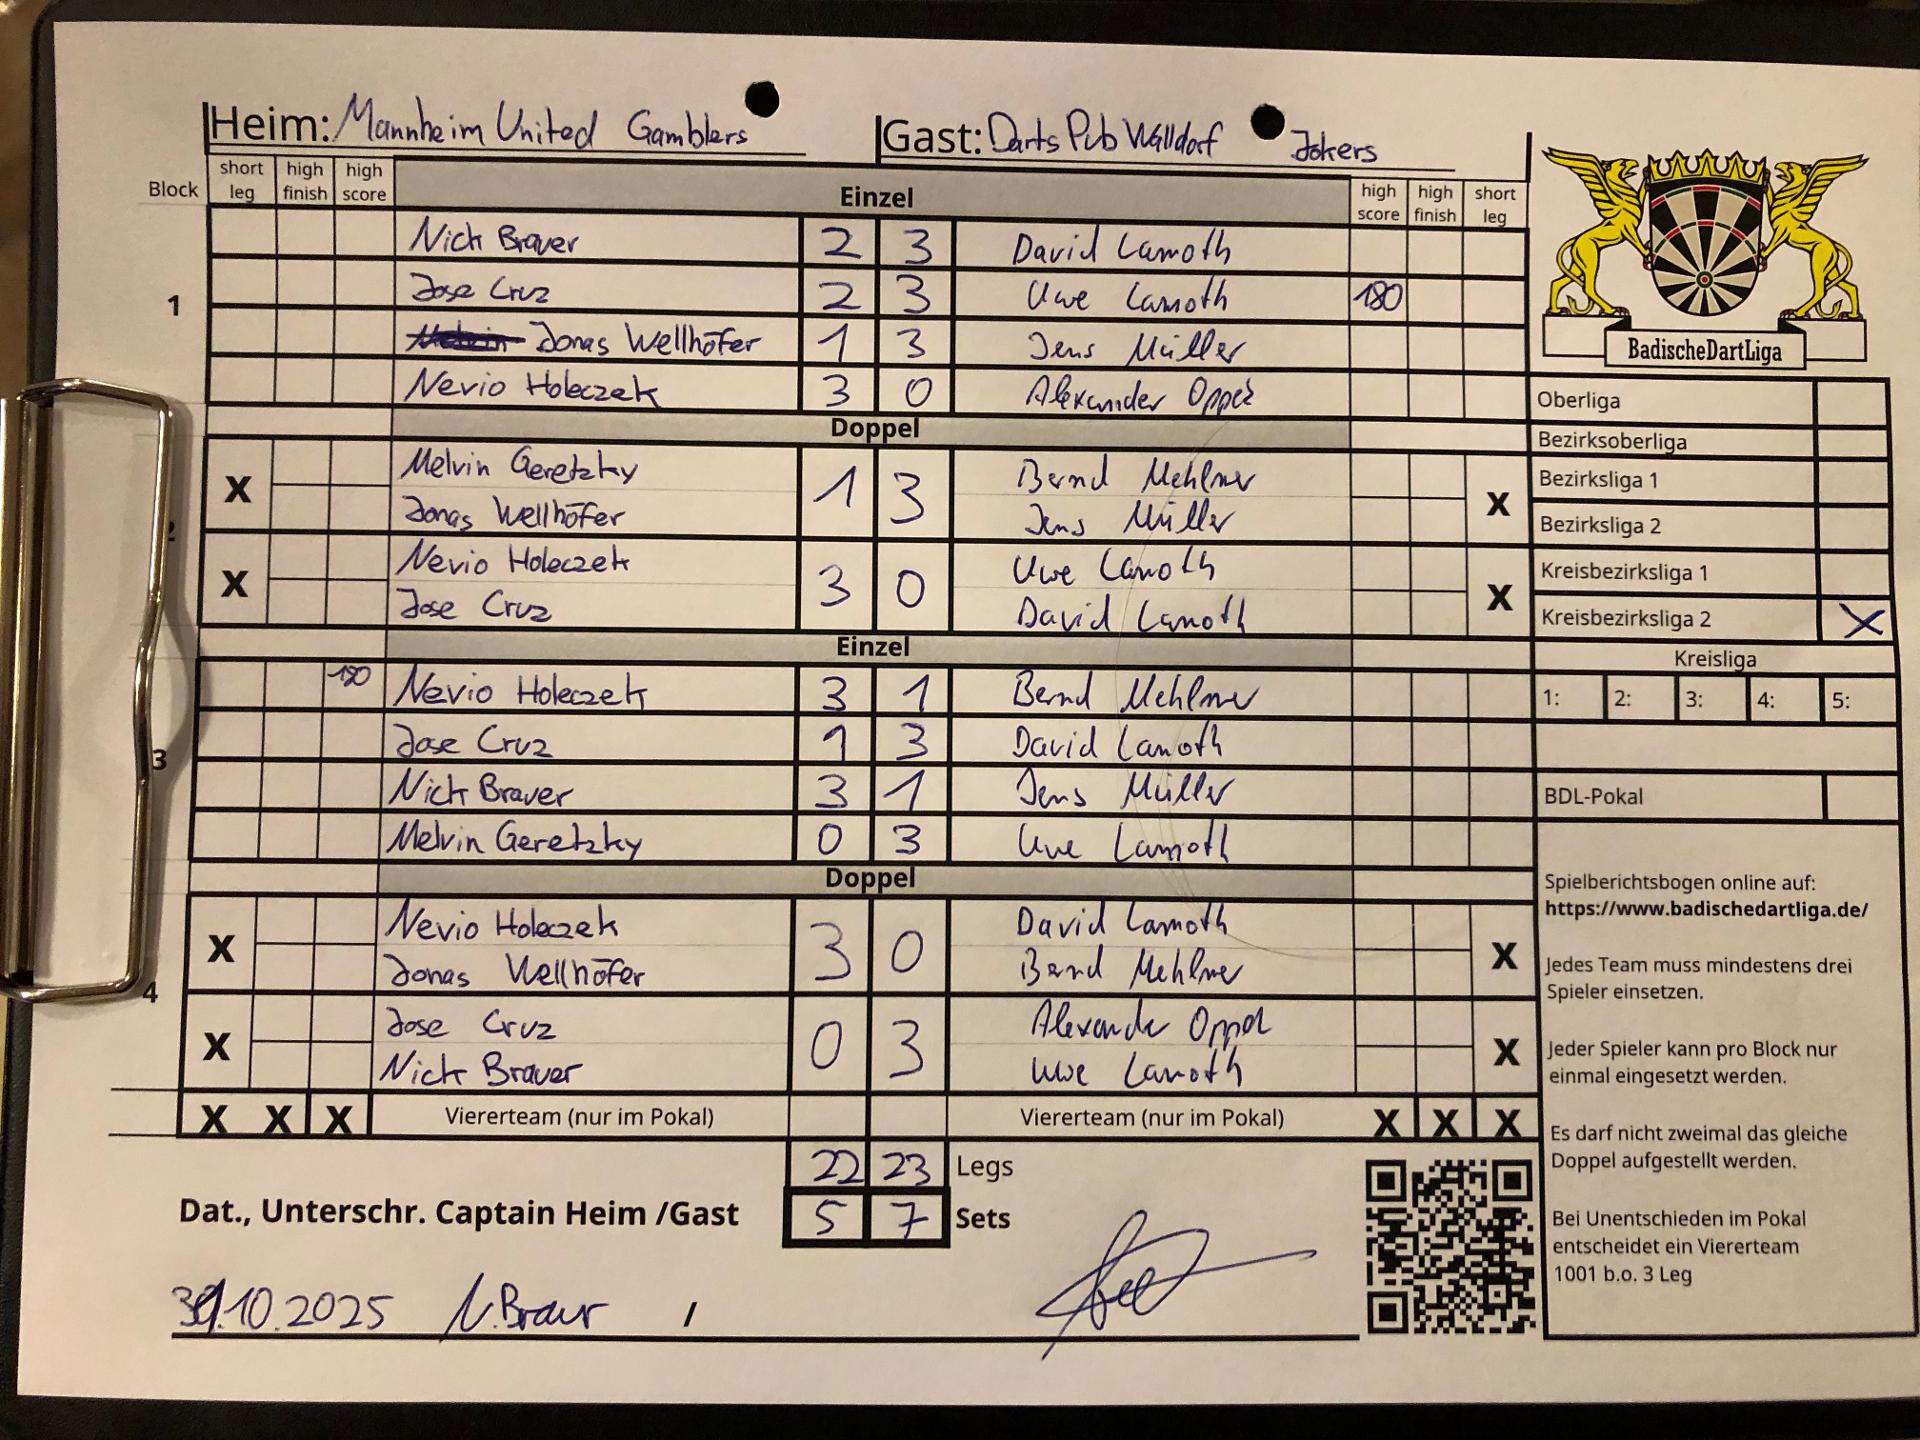 Heim: Mannheim United Gamblers Gast: Darts Pub Walldorf Jokers
Block short leg high finish high score Einzel high score high finish short leg
1
Nick Brauer 2 3 David Lamoth
Jose Cruz 2 3 Uwe Lamoth 180
Jonas Wellhöfer 1 3 Jens Müller
Nevio Holeczek 3 0 Alexander Oppel
Doppel
2
X Melvin Geretzky 1 3 Bernd Mehlmer X
Jonas Wellhöfer Jens Müller
X Nevio Holeczek 3 0 Uwe Lamoth X
Jose Cruz David Lamoth
Einzel
3
180 Nevio Holeczek 3 1 Bernd Mehlmer
Jose Cruz 1 3 David Lamoth
Nick Brauer 3 1 Jens Müller
Melvin Geretzky 0 3 Uwe Lamoth
Doppel
4
X Nevio Holeczek 3 0 David Lamoth X
Jonas Wellhöfer Bernd Mehlmer
X Jose Cruz 0 3 Alexander Oppel X
Nick Brauer Uwe Lamoth
X X X Viererteam (nur im Pokal) Viererteam (nur im Pokal) X X X
22 23 Legs
5 7 Sets
Dat., Unterschr. Captain Heim /Gast
10.2025 N. Brauer /
BadischeDartLiga
Oberliga
Bezirksoberliga
Bezirksliga 1
Bezirksliga 2
Kreisbezirksliga 1
Kreisbezirksliga 2 X
Kreisliga
1: 2: 3: 4: 5:
BDL-Pokal
Spielberichtsbogen online auf:
https://www.badischedartliga.de/
Jedes Team muss mindestens drei
Spieler einsetzen.
Jeder Spieler kann pro Block nur
einmal eingesetzt werden.
Es darf nicht zweimal das gleiche
Doppel aufgestellt werden.
Bei Unentschieden im Pokal
entscheidet ein Viererteam
1001 b.o. 3 Leg